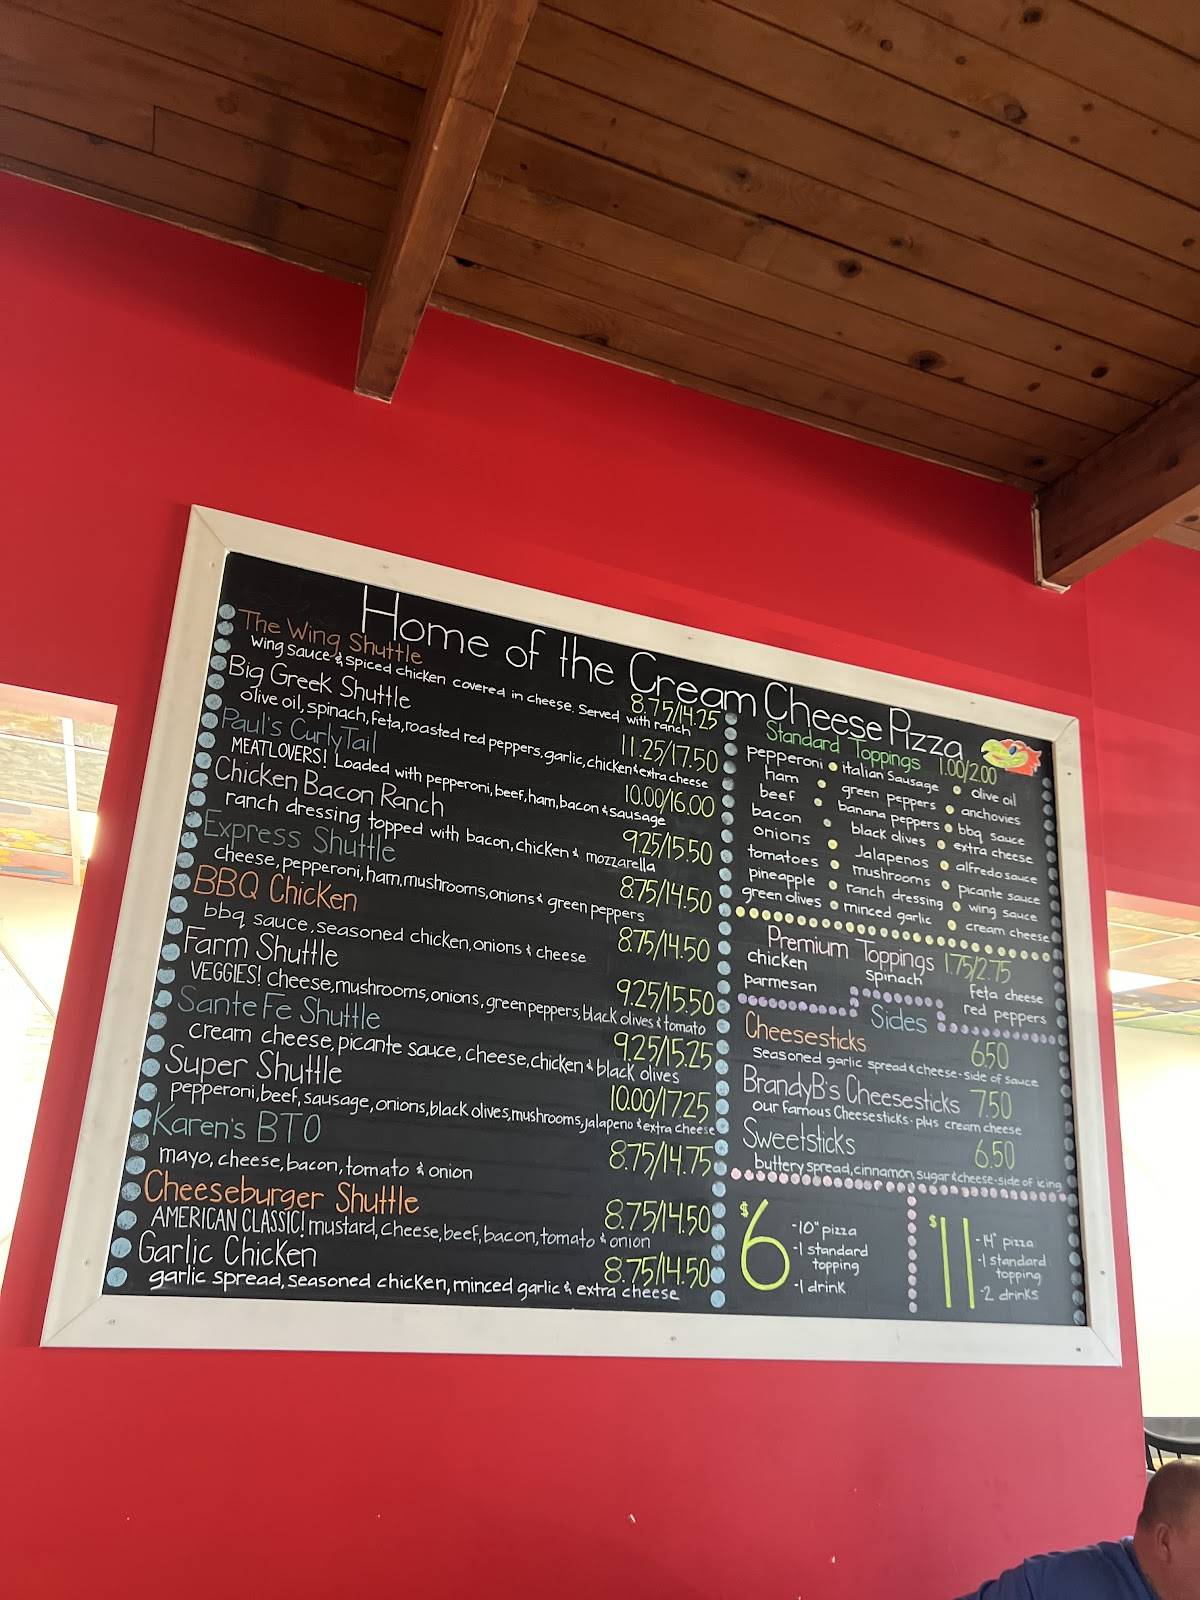 Home of the Cream Cheese Pizza
The Wing Shuttle
wing sauce & spiced chicken covered in cheese. Served with ranch
8.75/14.25
Big Greek Shuttle
olive oil, spinach, feta, roasted red peppers, garlic, chicken & extra cheese
11.25/17.50
Paul's CurlyTail
MEATLOVERS! Loaded with pepperoni, beef, ham, bacon & sausage
10.00/16.00
Chicken Bacon Ranch
ranch dressing topped with bacon, chicken & mozzarella
9.25/15.50
Express Shuttle
cheese, pepperoni, ham, mushrooms, onions & green peppers
8.75/14.50
BBQ Chicken
bbq sauce, seasoned chicken, onions & cheese
8.75/14.50
Farm Shuttle
VEGGIES! cheese, mushrooms, onions, green peppers, black olives & tomato
9.25/15.50
Sante Fe Shuttle
cream cheese, picante sauce, cheese, chicken & black olives
9.25/15.25
Super Shuttle
pepperoni, beef, sausage, onions, black olives, mushrooms, jalapeno & extra cheese
10.00/17.25
Karen's BTO
mayo, cheese, bacon, tomato & onion
8.75/14.75
Cheeseburger Shuttle
AMERICAN CLASSIC! mustard, cheese, beef, bacon, tomato & onion
8.75/14.50
Garlic Chicken
garlic spread, seasoned chicken, minced garlic & extra cheese
8.75/14.50
Standard Toppings 1.00/2.00
pepperoni • italian Sausage • olive oil
ham • green peppers • anchovies
beef • banana peppers • bbq sauce
bacon • black olives • extra cheese
onions • Jalapenos • alfredo sauce
tomatoes • mushrooms • picante sauce
pineapple • ranch dressing • wing sauce
green olives • minced garlic • cream cheese
Premium Toppings 1.75/2.75
chicken spinach feta cheese
parmesan red peppers
Sides
Cheesesticks 6.50
seasoned garlic spread & cheese - side of sauce
BrandyB's Cheesesticks 7.50
our famous Cheesesticks - plus cream cheese
Sweetsticks 6.50
buttery spread, cinnamon, sugar & cheese - side of icing
$6
-10" pizza
-1 standard
topping
-1 drink
$11
-14" pizza
-1 standard
topping
-2 drinks